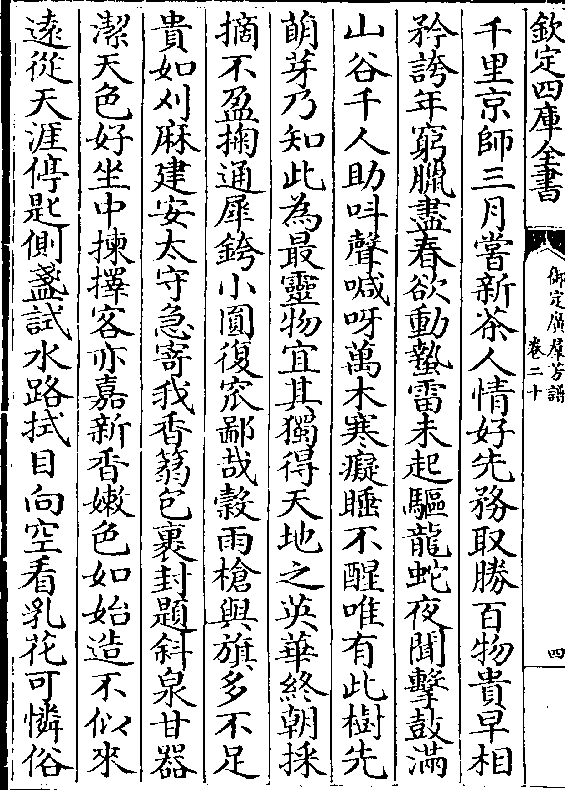 欽定四庫全書
御定廣羣芳譜
卷二十
四
千里京師三月嘗新茶人情好先務取勝百物貴早相
矜誇年窮臘盡春欲動蟄雷未起驅龍蛇夜聞擊鼓滿
山谷千人助叫聲喊呀萬木寒癡睡不醒唯有此樹先
萌芽乃知此為最靈物宜其獨得天地之英華終朝採
摘不盈掬通犀銙小圓復窊鄙哉穀雨槍與旗多不足
貴如刈麻建安太守急寄我香篛包裹封題斜泉甘器
潔天色好坐中揀擇客亦嘉新香嫩色如始造不似來
逺從天涯停匙側盞試水路拭目向空看乳花可憐俗